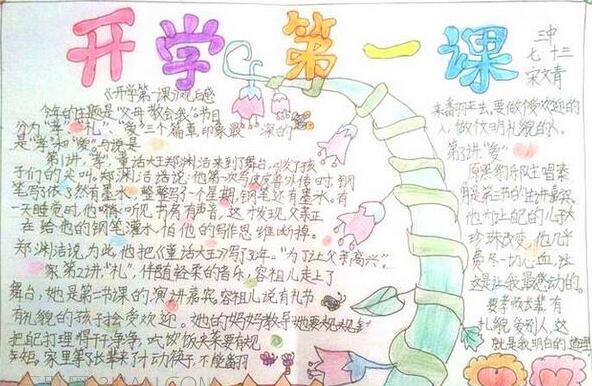 开学第一课
三中
七 十三
宋文青
《开学第一课》观后感
今年的主题是“父母教会我”节目
分为“孝”、“礼”、“爱”三个篇章印象最深的
是“孝”和“爱”
第1讲“孝”童话大王郑渊洁来到了舞台,引起了孩
子们的尖叫。郑渊洁说,他第一次写皮皮鲁外传时,钢
笔写了依然有墨水,整整写了一个星期,钢笔还有墨水。有
一天睡觉时,他听见书房有声音,这才发现,父亲正
在给他的钢笔灌水,怕他的写作思维断掉。
郑渊洁说,为此,他把《童话大王》写了30年。“为了让父亲高兴”。
第2讲“礼”,伴随轻柔的音乐,容祖儿走上了
舞台,她是第二节课的演讲嘉宾。容祖儿说,有礼节
有礼貌的孩子才会受欢迎。她的妈妈教导她要规规矩矩
把自己打理得干干净净,吃饭夹菜要有规
矩,家里的长辈未动筷子,不能翻
来翻去,要做个受欢迎的
人,做个文明礼貌的人。
第3讲“爱”
主唱秦
勇是第三节的主讲嘉宾。
他为
珍珠改变。他几乎
费尽一切心血,这
这是让我最感动的。
要孝敬长辈,有
礼貌,爱别人,这
就是我明白的道理